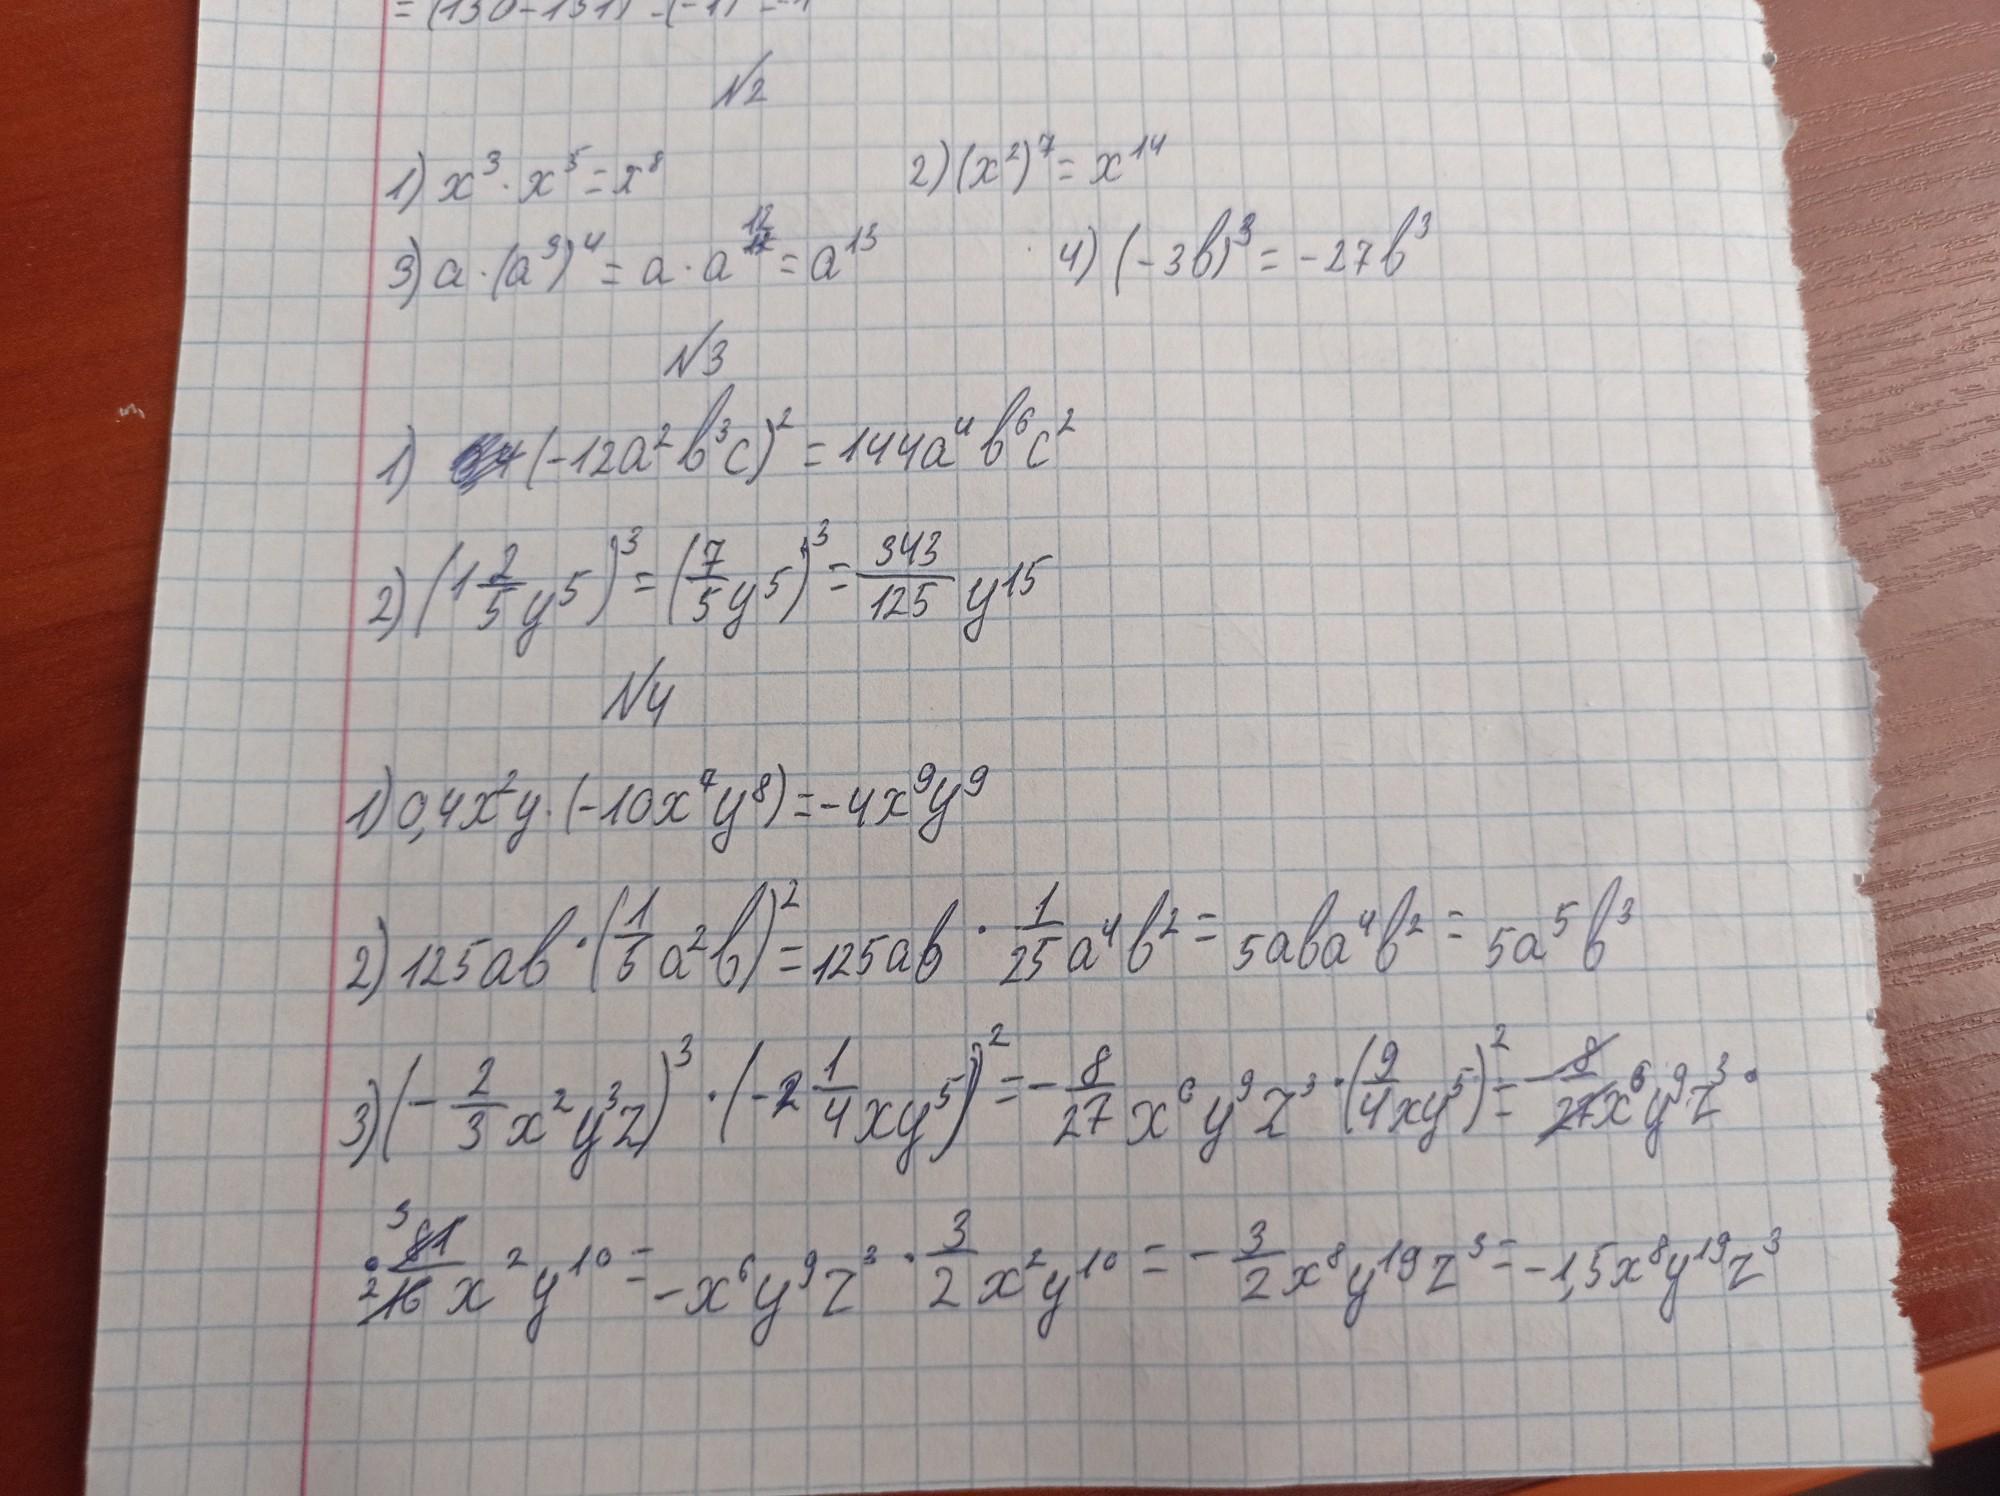 = (130-131) -(-1) = -1
№2
1) x³ · x⁵ = x⁸ 2) (x²)⁷ = x¹⁴
3) a · (a³)⁴ = a · a¹² = a¹³ 4) (-3b)³ = -27b³
№3
1) (-12a²b³c)² = 144a⁴b⁶c²
2) (1 2/5 y⁵)³ = (7/5 y⁵)³ = 343/125 y¹⁵
№4
1) 0,4x²y · (-10x⁷y⁸) = -4x⁹y⁹
2) 125ab · (1/5 a²b)² = 125ab · 1/25 a⁴b² = 5aba⁴b² = 5a⁵b³
3) (- 2/3 x²y³z)³ · (-2 1/4 xy⁵)² = - 8/27 x⁶y⁹z³ · (9/4 xy⁵)² = - 8/27 x⁶y⁹z³ ·
· 3 81/16 2 x²y¹⁰ = -x⁶y⁹z³ · 3/2 x²y¹⁰ = - 3/2 x⁸y¹⁹z³ = -1,5x⁸y¹⁹z³